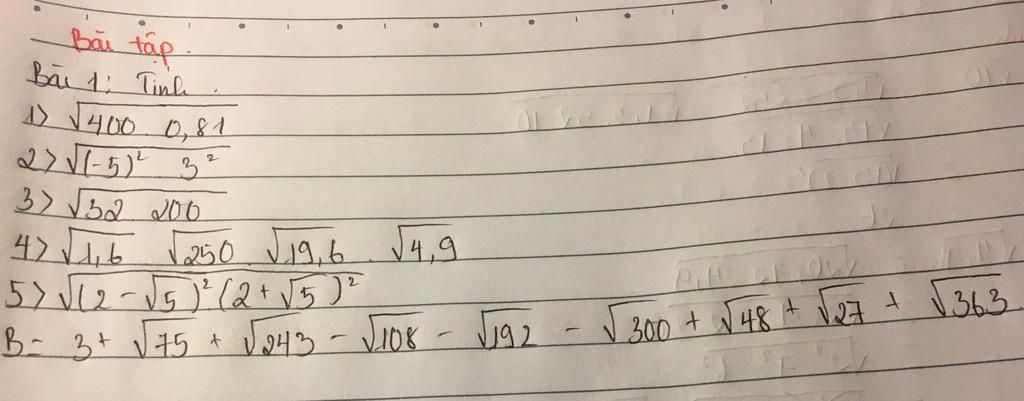 Bài tập.
Bài 1: Tính.
1) √400 . 0,81
2) √(-5)² . 3²
3) √32 . 200
4) √1,6 . √250 . √19,6 . √4,9
5) √(2 - √5)² (2 + √5)²
B = 3 + √75 + √243 - √108 - √192 - √300 + √48 + √27 + √363